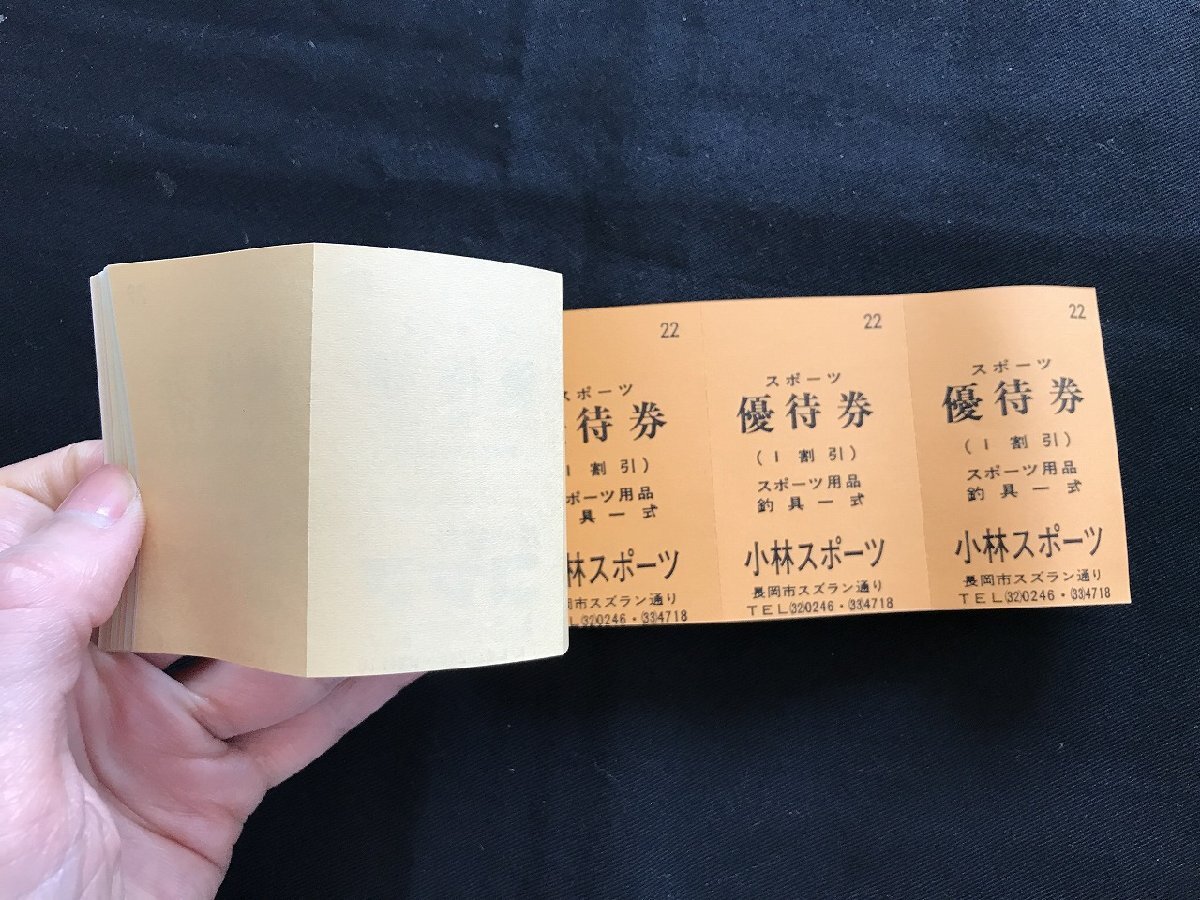 22
スポーツ
待券
割引）
ポーツ用品
具一式
林スポーツ
岡市スズラン通り
L(32)0246・(33)4718
22
スポーツ
優待券
（1割引）
スポーツ用品
釣具一式
小林スポーツ
長岡市スズラン通り
TEL(32)0246・(33)4718
22
スポーツ
優待券
（1割引）
スポーツ用品
釣具一式
小林スポーツ
長岡市スズラン通り
TEL(32)0246・(33)4718